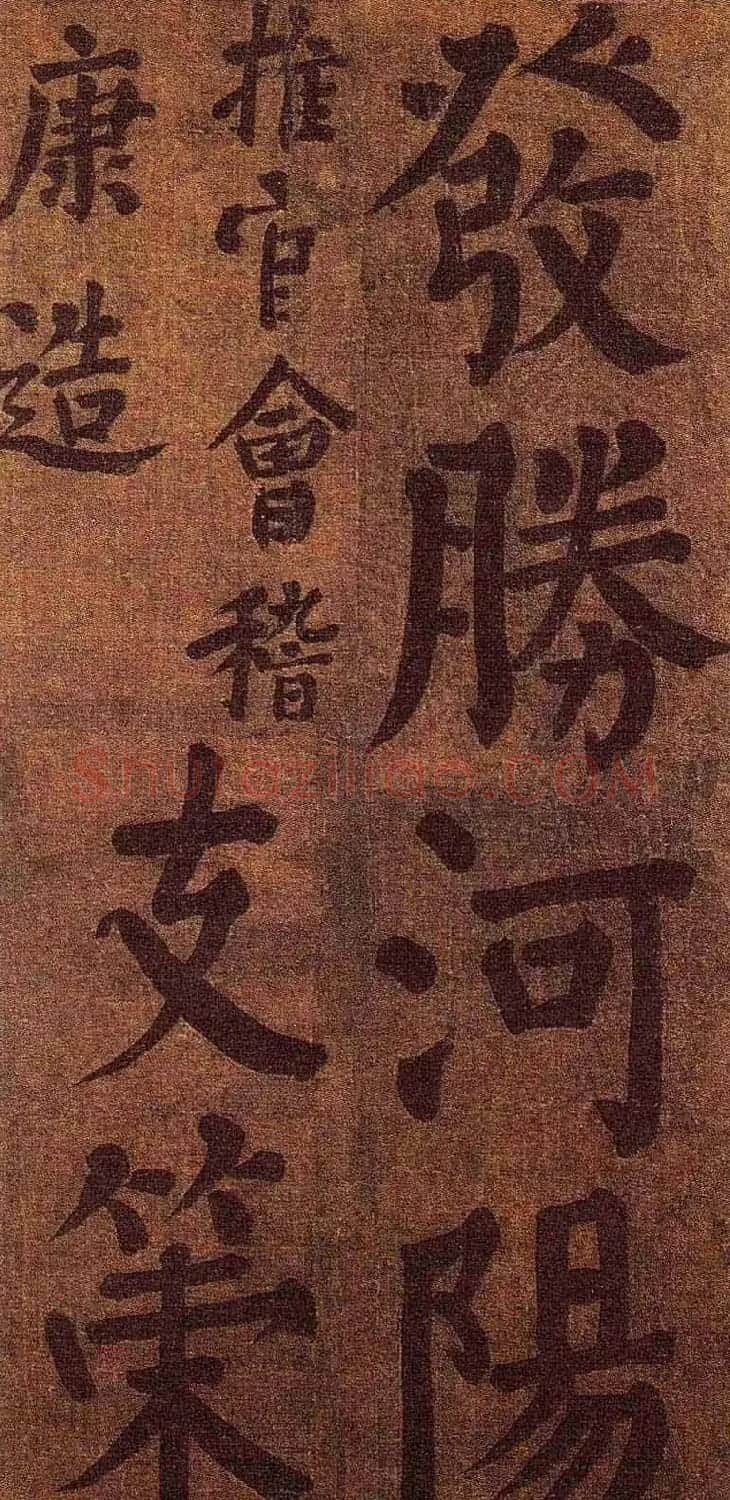 發勝河陽
推官會稽
康造
支策
Shufaziliao.COM